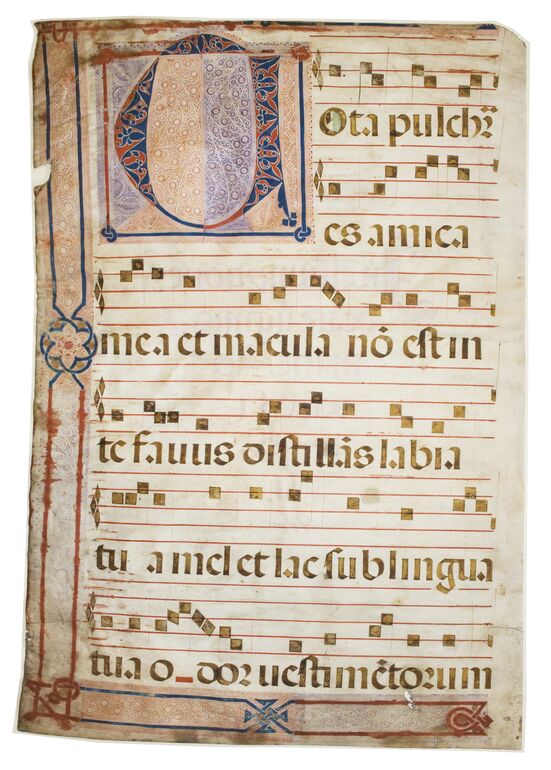 Tota pulchr̃
es amica
mea et macula nō est in
te favus distillās labia
tu a mel et lac sub lingua
tua o dor uestimētorum